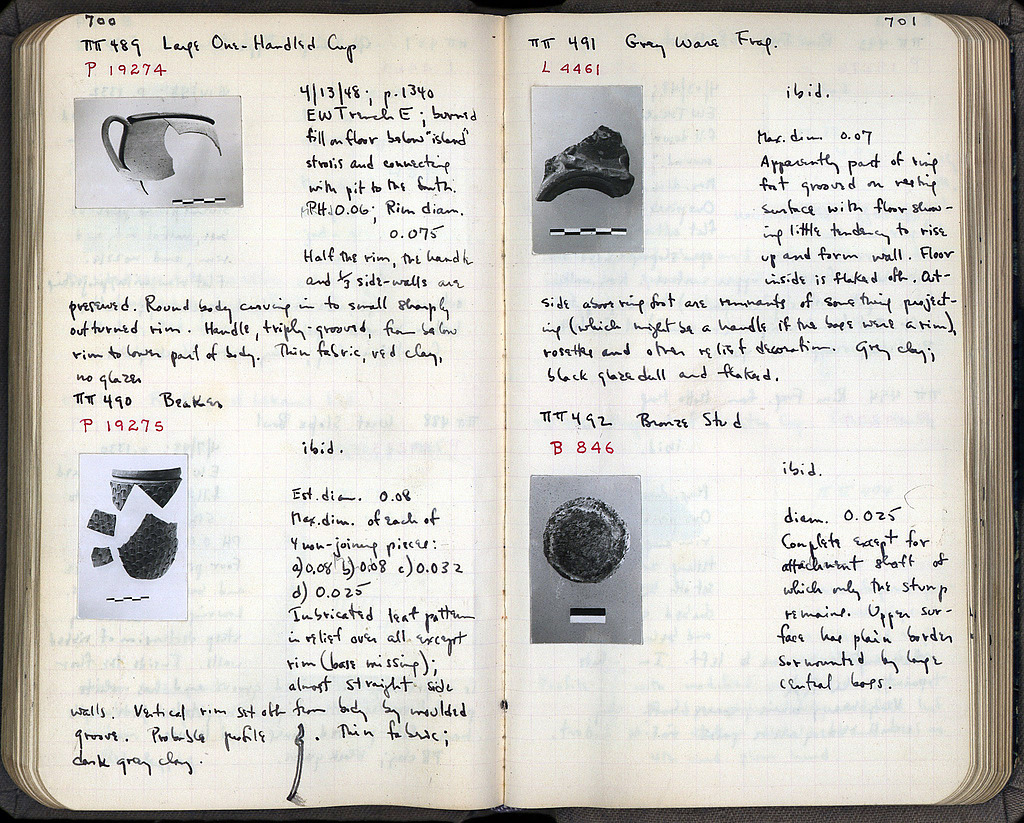 700
ΠΠ 489 Large One-Handled Cup
P 19274
4/13/48; p. 1340
EW Trench E; burned
fill on floor below "island"
strosis and connecting
with pit to the South.
P.H. 0.06; Rim diam.
0.075
Half the rim, the handle
and ⅓ side-walls are
preserved. Round body curving in to small sharply
outturned rim. Handle, triply-grooved, from below
rim to lower part of body. Thin fabric, red clay,
no glaze
ΠΠ 490 Beaker
P 19275
ibid.
Est. diam. 0.08
Max. dim. of each of
4 non-joining pieces:
a) 0.08 b) 0.08 c) 0.032
d) 0.025
Imbricated leaf pattern
in relief over all except
rim (base missing);
almost straight side
walls. Vertical rim set off from body by moulded
groove. Probable profile . Thin fabric;
dark grey clay.
701
ΠΠ 491 Grey Ware Frag.
L 4461
ibid.
Max. dim. 0.07
Apparently part of ring
foot grooved on resting
surface with floor show-
ing little tendency to rise
up and form wall. Floor
inside is flaked off. Out-
side above ring foot are remnants of something project-
ing (which might be a handle if the base were a rim),
rosettes and other relief decoration. Grey clay;
black glaze dull and flaked.
ΠΠ 492 Bronze Stud
B 846
ibid.
diam. 0.025
Complete except for
attachment shaft of
which only the stump
remains. Upper sur-
face has plain border
surmounted by large
central boss.